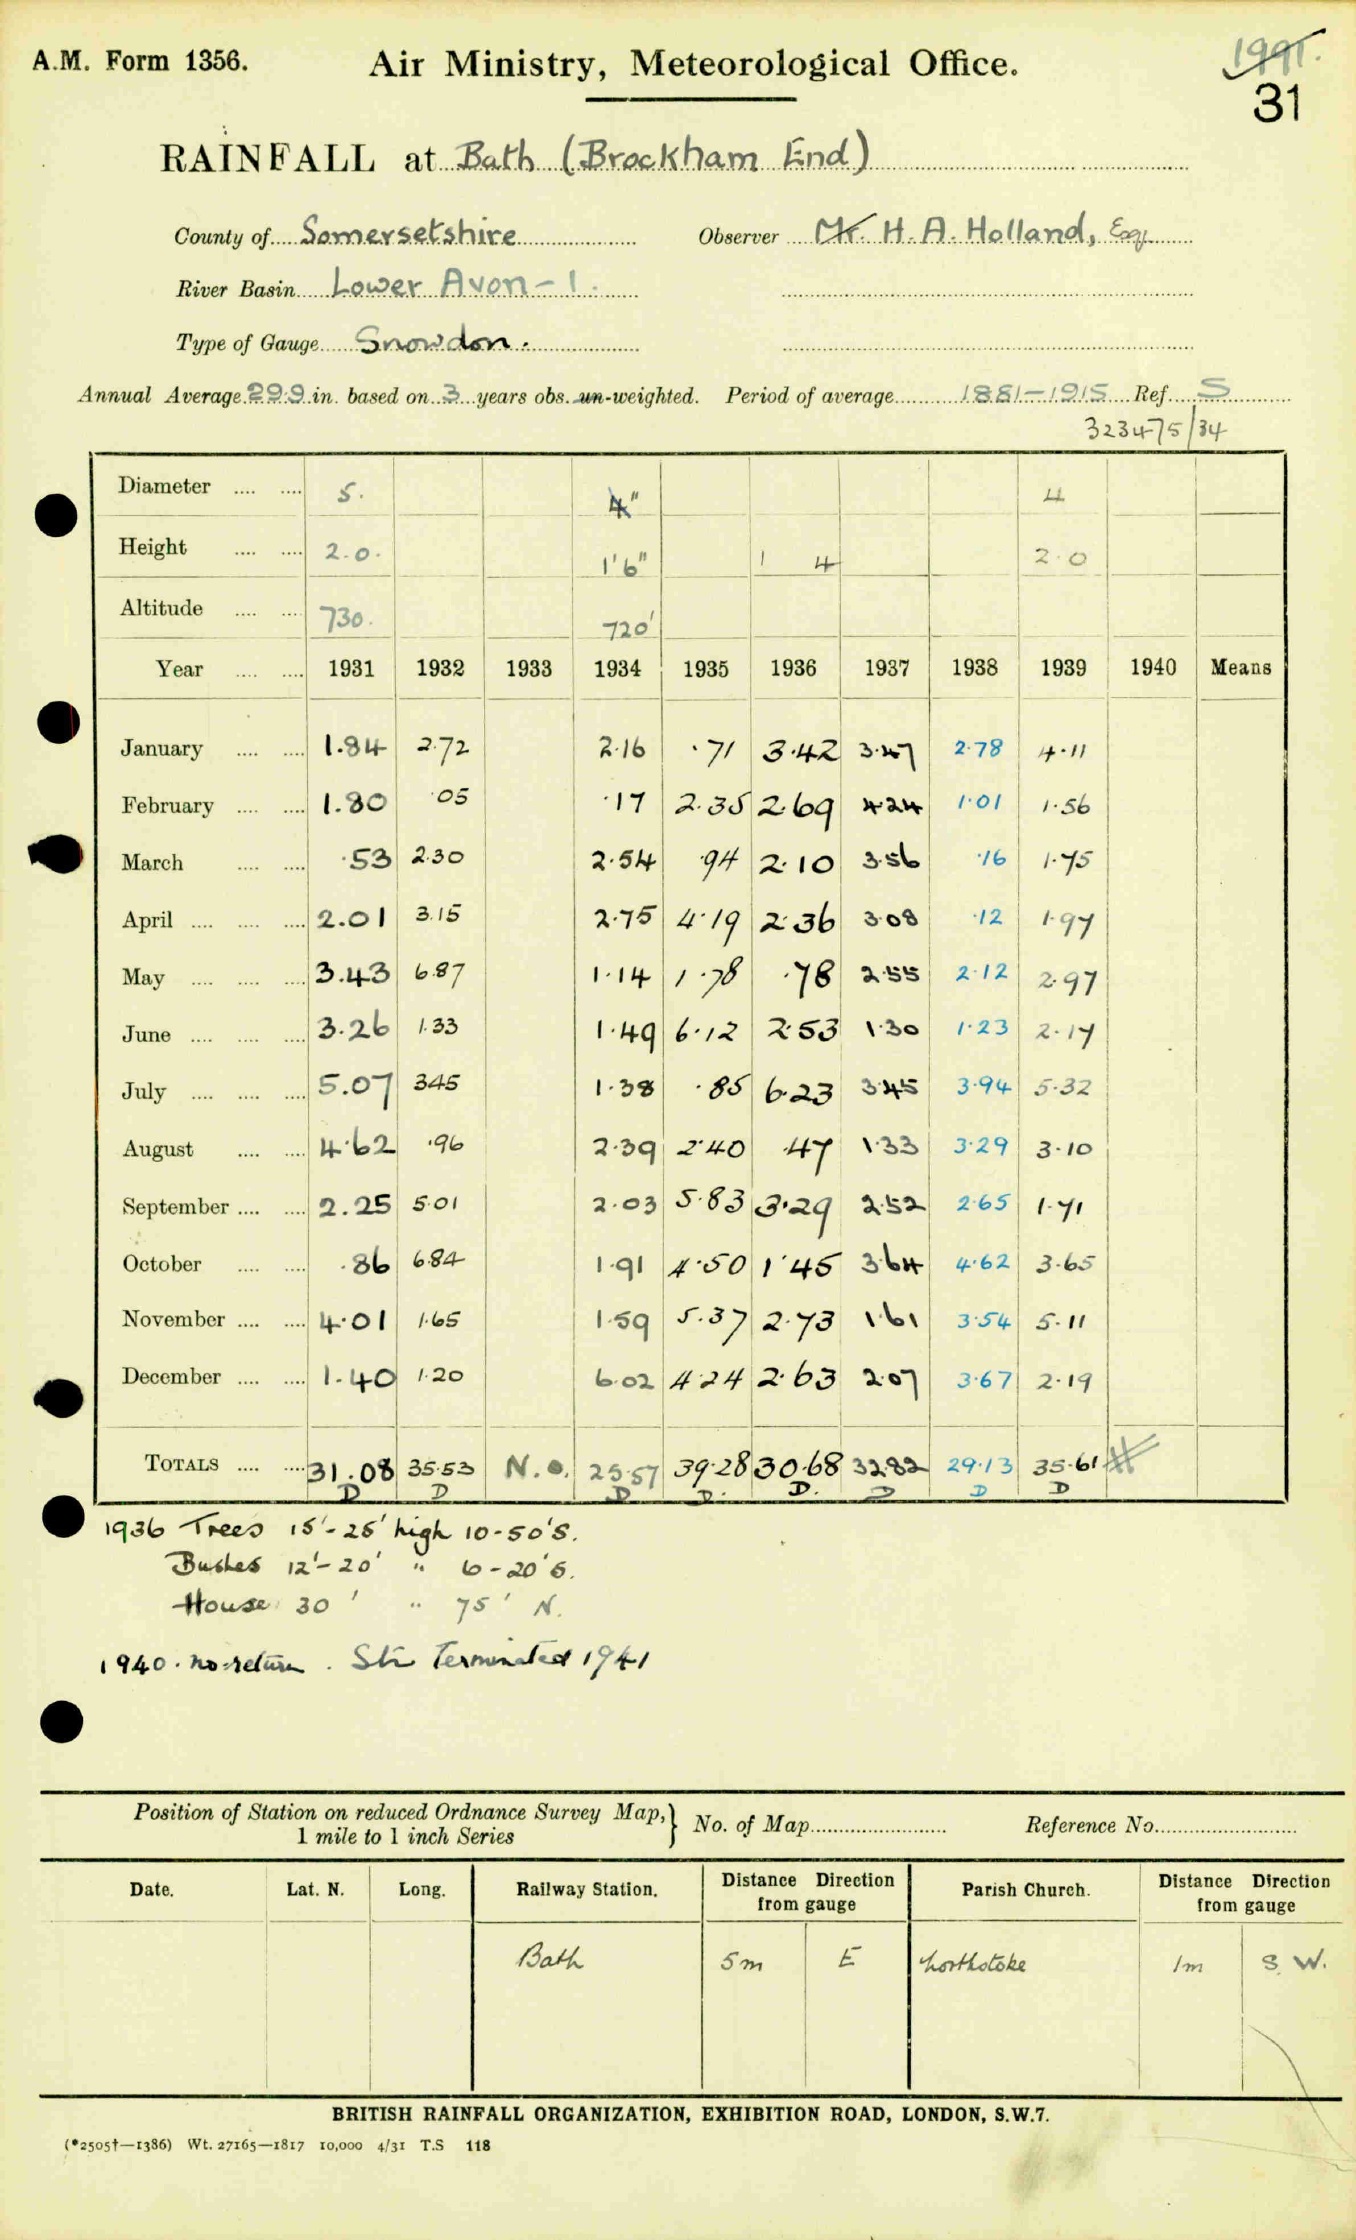 A.M. Form 1356. Air Ministry, Meteorological Office. 1991.
31
RAINFALL at Bath (Brockham End)
County of Somersetshire Observer Mr. H. A. Holland, Esq.
River Basin Lower Avon - 1.
Type of Gauge Snowdon.
Annual Average 29.9 in. based on 3 years obs. un-weighted. Period of average 1881-1915 Ref. S
323475/34
Diameter .... .... 5. 4" 4
Height .... .... 2.0. 1'6" 1 4 2.0
Altitude .... .... 730. 720'
Year .... .... 1931 1932 1933 1934 1935 1936 1937 1938 1939 1940 Means
January .... .... 1.84 2.72 2.16 .71 3.42 3.47 2.78 4.11
February .... .... 1.80 .05 .17 2.35 2.69 4.24 1.01 1.56
March .... .... .53 2.30 2.54 .94 2.10 3.56 .16 1.75
April .... .... .... 2.01 3.15 2.75 4.19 2.36 3.08 .12 1.97
May .... .... .... 3.43 6.87 1.14 1.78 .78 2.55 2.12 2.97
June .... .... .... 3.26 1.33 1.49 6.12 2.53 1.30 1.23 2.17
July .... .... .... 5.07 345 1.38 .85 6.23 3.45 3.94 5.32
August .... .... 4.62 .96 2.39 2.40 .47 1.33 3.29 3.10
September .... .... 2.25 5.01 2.03 5.83 3.29 2.52 2.65 1.71
October .... .... .86 6.84 1.91 4.50 1.45 3.64 4.62 3.65
November .... .... 4.01 1.65 1.59 5.37 2.73 1.61 3.54 5.11
December .... .... 1.40 1.20 6.02 4.24 2.63 2.07 3.67 2.19
TOTALS .... .... 31.08 35.53 N.o. 25.57 39.28 30.68 32.82 29.13 35.61
D D D D. D. D D D
1936 Trees 15'-25' high 10-50'S.
Bushes 12'-20' " 6-20'S.
House 30' " 75' N.
1940. no return. Stn Terminated 1941
Position of Station on reduced Ordnance Survey Map, } No. of Map Reference No.
1 mile to 1 inch Series
Date. Lat. N. Long. Railway Station. Distance Direction from gauge Parish Church. Distance Direction from gauge
Bath 5m E Northstoke 1m S.W.
BRITISH RAINFALL ORGANIZATION, EXHIBITION ROAD, LONDON, S.W.7.
(*2505†—1386) Wt. 27165—1817 10,000 4/31 T.S 118